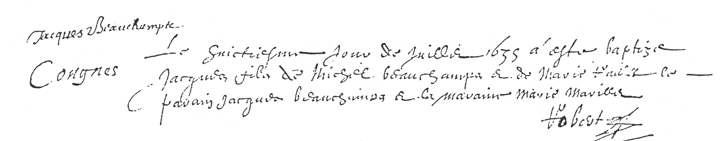 Jacques Beauchampts
Congnes
Le huictiesme jour de Juillet 1635 a este baptize
Jacques fils de Michel beauchamps & de Marie le
parain Jacques beauchamps & la maraine Marie Mavilla